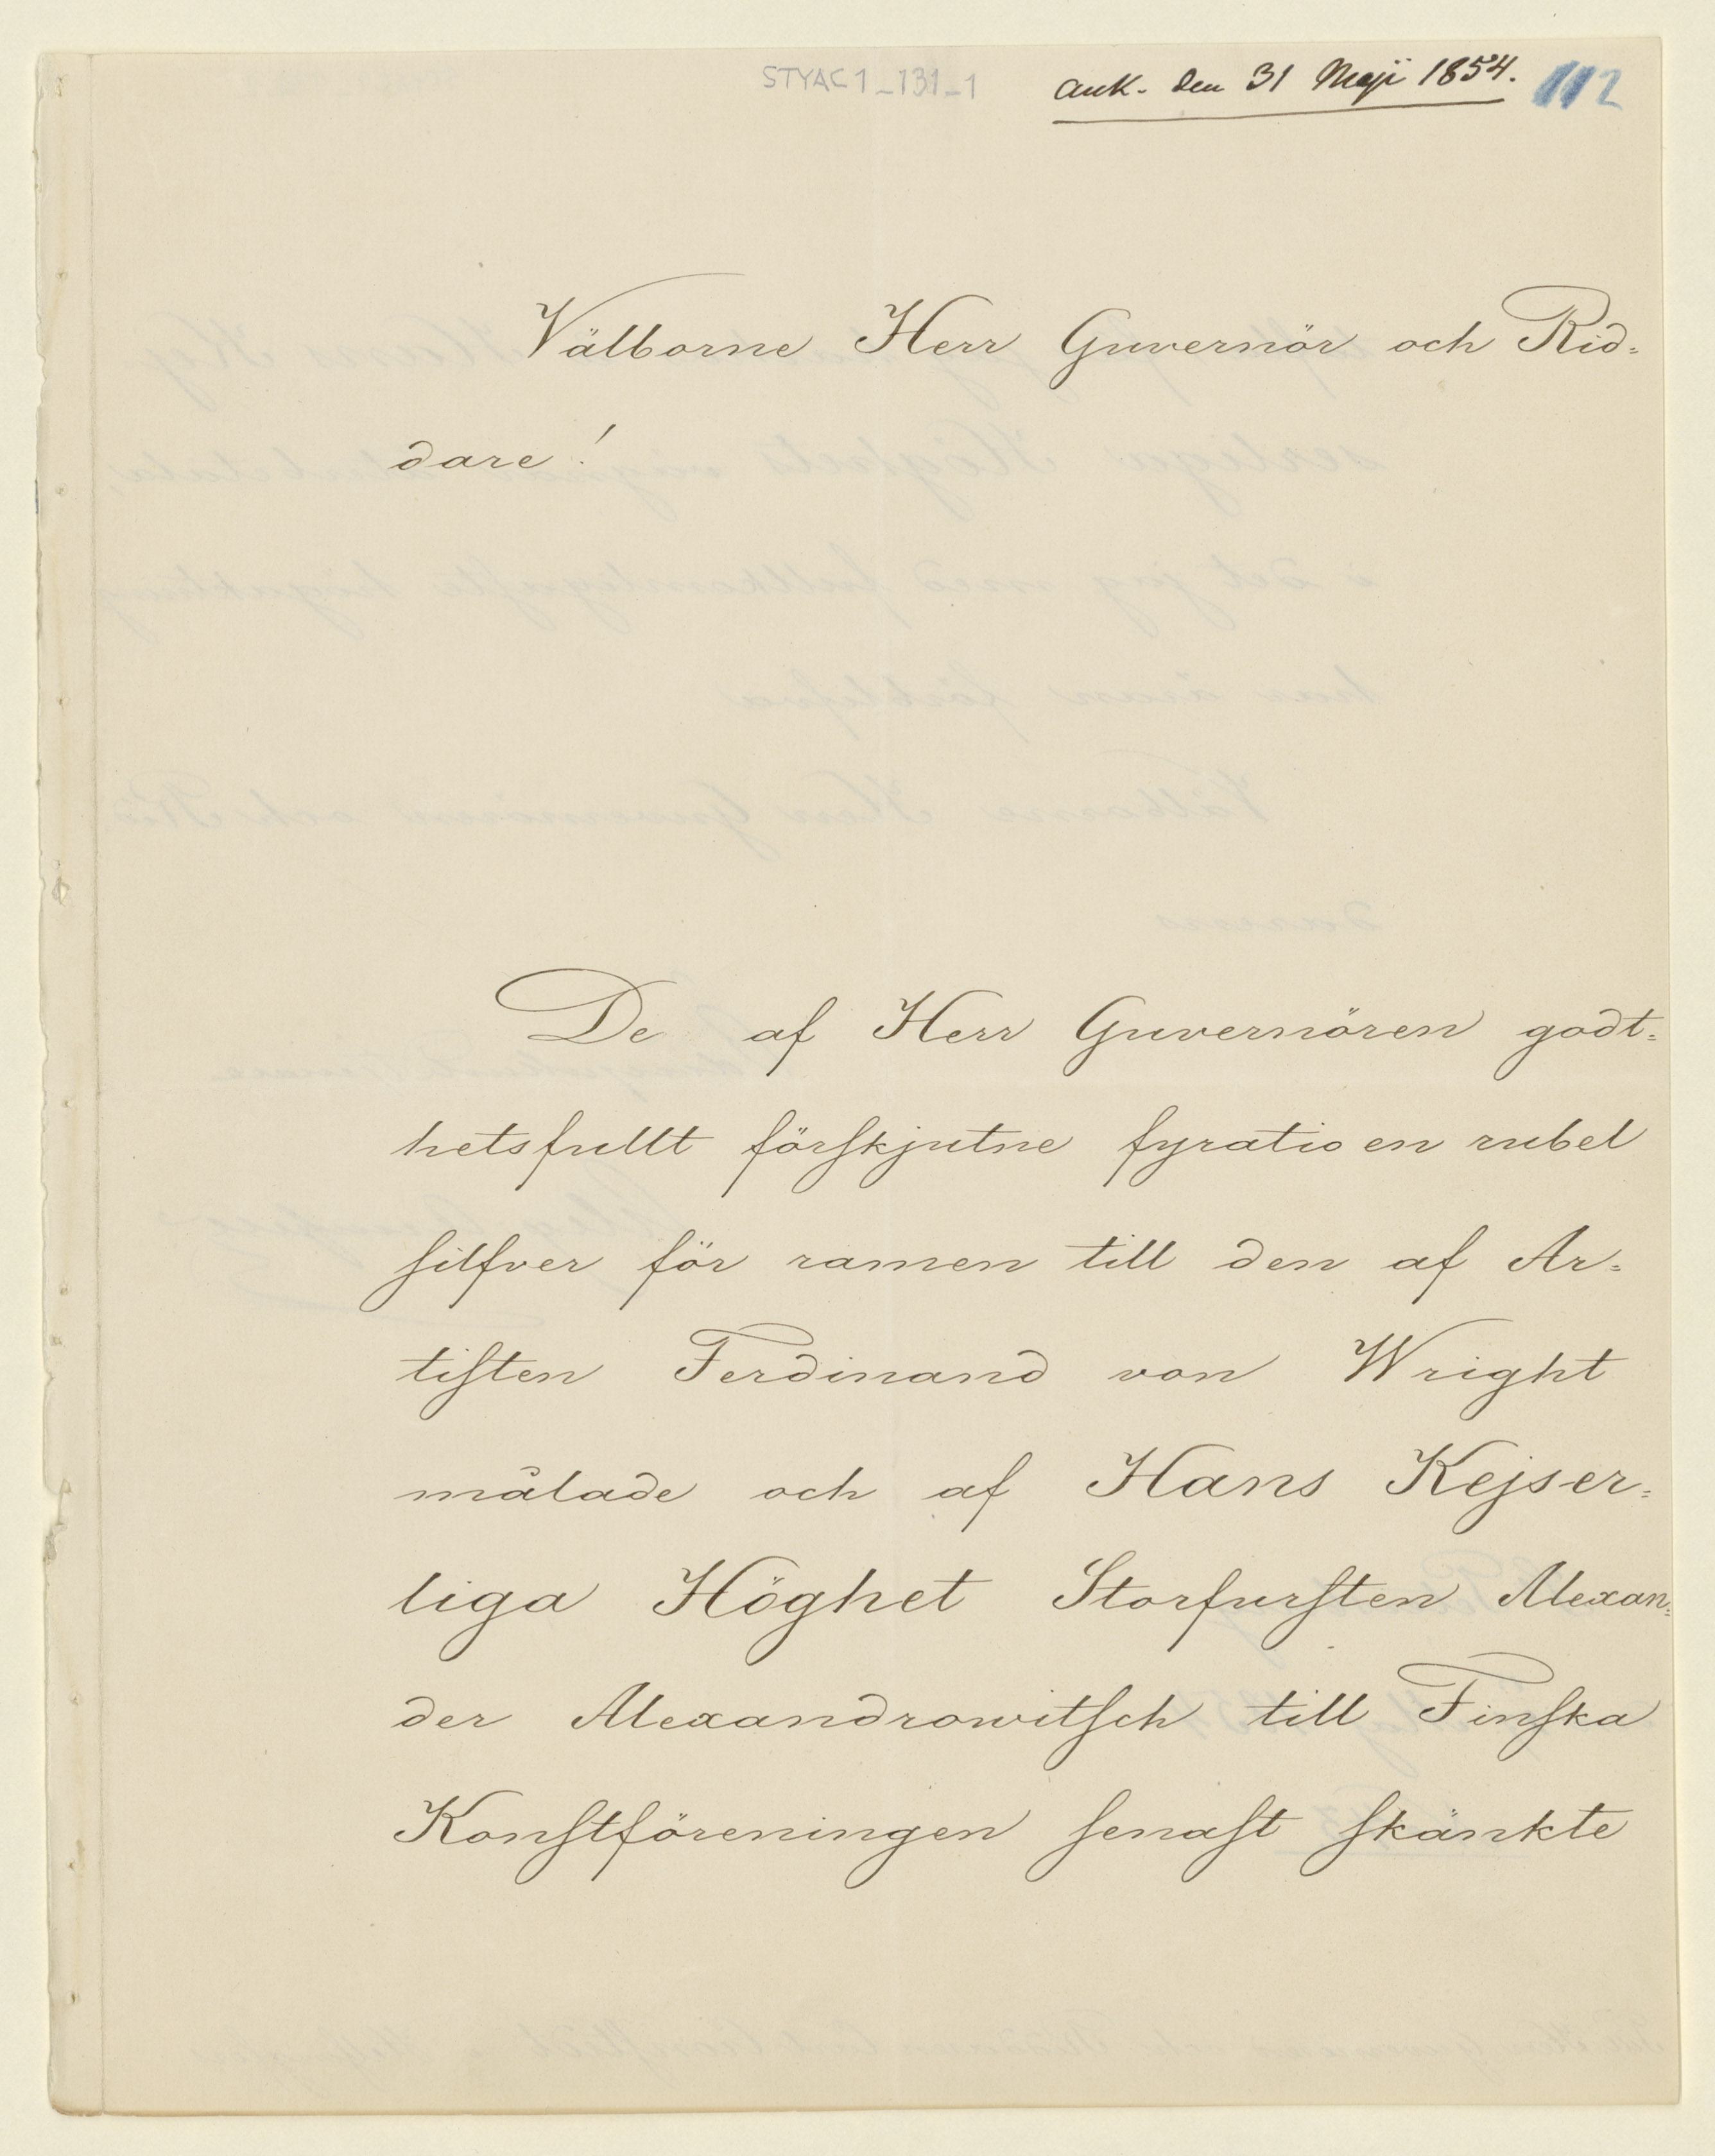 STYAC1_131_1
ank. den 31 Maji 1854.
112
Välborne Herr Guvernör och Rid=
dare!
De af Herr Guvernören godt=
hetsfullt förskjutne fyratio en rubel
silfver för ramen till den af Ar=
tisten Ferdinand von Wright
målade och af Hans Kejser=
liga Höghet Storfursten Alexan=
der Alexandrowitsch till Finska
Konstföreningen senast skänkte